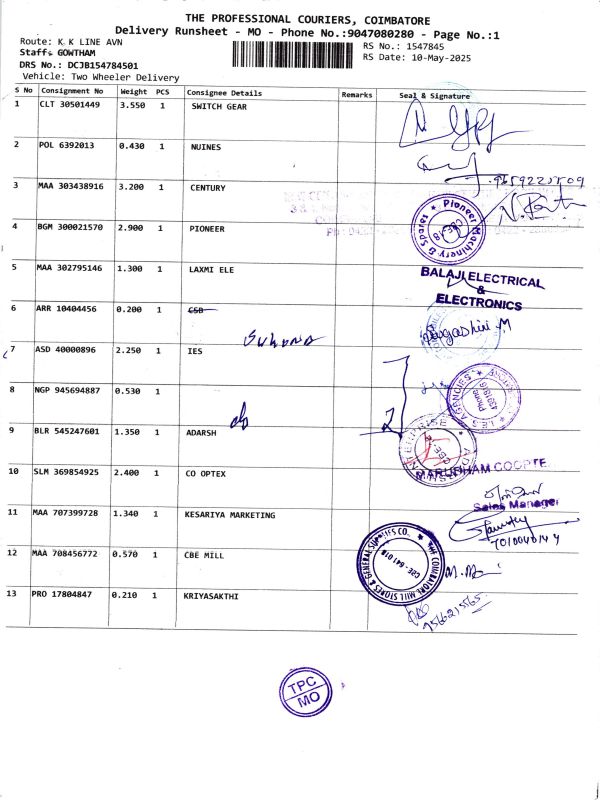 THE PROFESSIONAL COURIERS, COIMBATORE
Delivery Runsheet - MO - Phone No.:9047080280 - Page No.:1
Route: K K LINE AVN
RS No.: 1547845
Staff: GOWTHAM
RS Date: 10-May-2025
DRS No.: DCJB154784501
Vehicle: Two Wheeler Delivery
S No Consignment No Weight PCS Consignee Details Remarks Seal & Signature
1 CLT 30501449 3.550 1 SWITCH GEAR
2 POL 6392013 0.430 1 NUINES
3 MAA 303438916 3.200 1 CENTURY
4 BGM 300021570 2.900 1 PIONEER
Pioneer Machinery & Spares
5 MAA 302795146 1.300 1 LAXMI ELE
BALAJI ELECTRICAL
&
ELECTRONICS
6 ARR 10404456 0.200 1 CSB
7 ASD 40000896 2.250 1 IES
8 NGP 945694887 0.530 1
9 BLR 545247601 1.350 1 ADARSH
10 SLM 369854925 2.400 1 CO OPTEX
MARUDHAM COOPTE
Sales Manager
11 MAA 707399728 1.340 1 KESARIYA MARKETING
12 MAA 708456772 0.570 1 CBE MILL
THE COIMBATORE MILL STORES & GENERAL SUPPLIES CO.
CBE - 641 018
13 PRO 17804847 0.210 1 KRIYASAKTHI
9566215565
TPC
MO